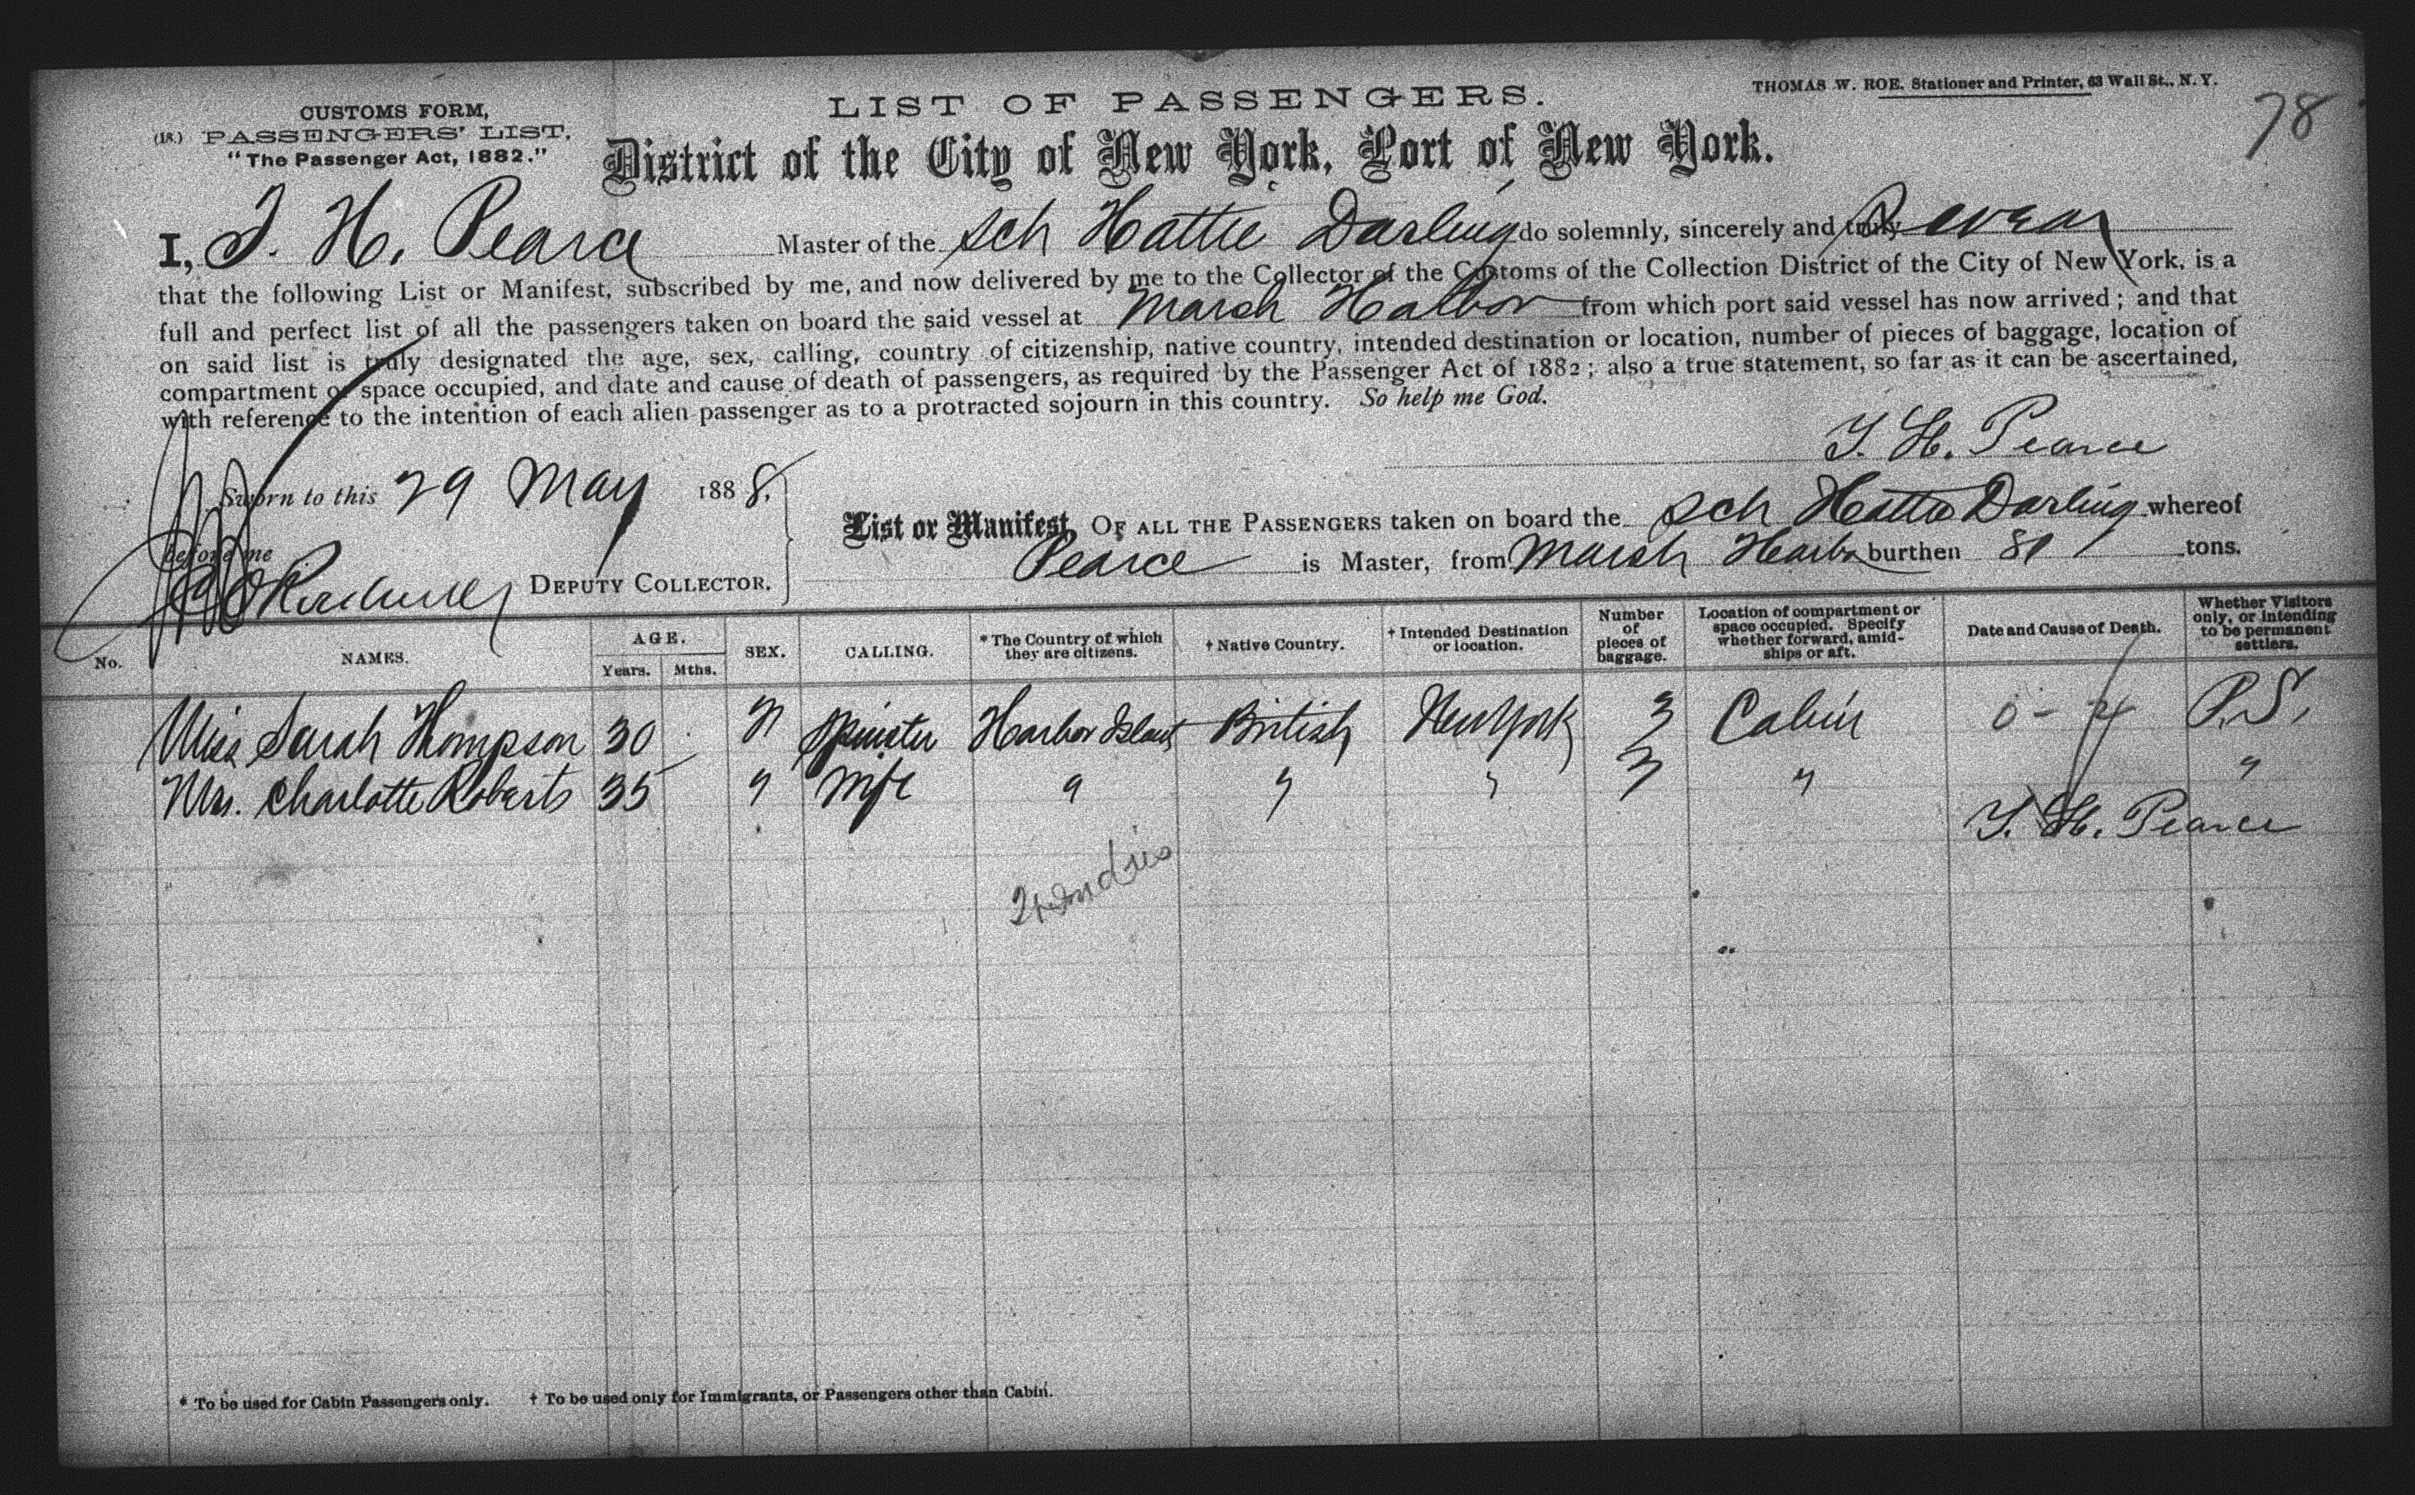 CUSTOMS FORM,
(18.) PASSENGERS' LIST.
"The Passenger Act, 1882."
LIST OF PASSENGERS.
THOMAS W. ROE, Stationer and Printer, 63 Wall St., N. Y.
78
District of the City of New York, Port of New York.
I, T. H. Pearce Master of the Sch Hattie Darling do solemnly, sincerely and truly Swear
that the following List or Manifest, subscribed by me, and now delivered by me to the Collector of the Customs of the Collection District of the City of New York, is a
full and perfect list of all the passengers taken on board the said vessel at Marsh Halbor from which port said vessel has now arrived; and that
on said list is truly designated the age, sex, calling, country of citizenship, native country, intended destination or location, number of pieces of baggage, location of
compartment or space occupied, and date and cause of death of passengers, as required by the Passenger Act of 1882; also a true statement, so far as it can be ascertained,
with reference to the intention of each alien passenger as to a protracted sojourn in this country. So help me God.
T. H. Pearce
Sworn to this 29 May 1888.
before me
DEPUTY COLLECTOR.
List or Manifest, OF ALL THE PASSENGERS taken on board the Sch Hattie Darling whereof
Pearce is Master, from Marsh Harbor burthen 81 tons.
No. NAMES. AGE. Years. Mths. SEX. CALLING. * The Country of which they are citizens. † Native Country. † Intended Destination or location. Number of pieces of baggage. Location of compartment or space occupied. Specify whether forward, amid-ships or aft. Date and Cause of Death. Whether Visitors only, or intending to be permanent settlers.
Miss Sarah Thompson 30 Spinster Harbor Island British New York 3 Cabin P.S.
Mrs. Charlotte Roberts 35 " Wife " " " 3 " "
T. H. Pearce
* To be used for Cabin Passengers only. † To be used only for Immigrants, or Passengers other than Cabin.